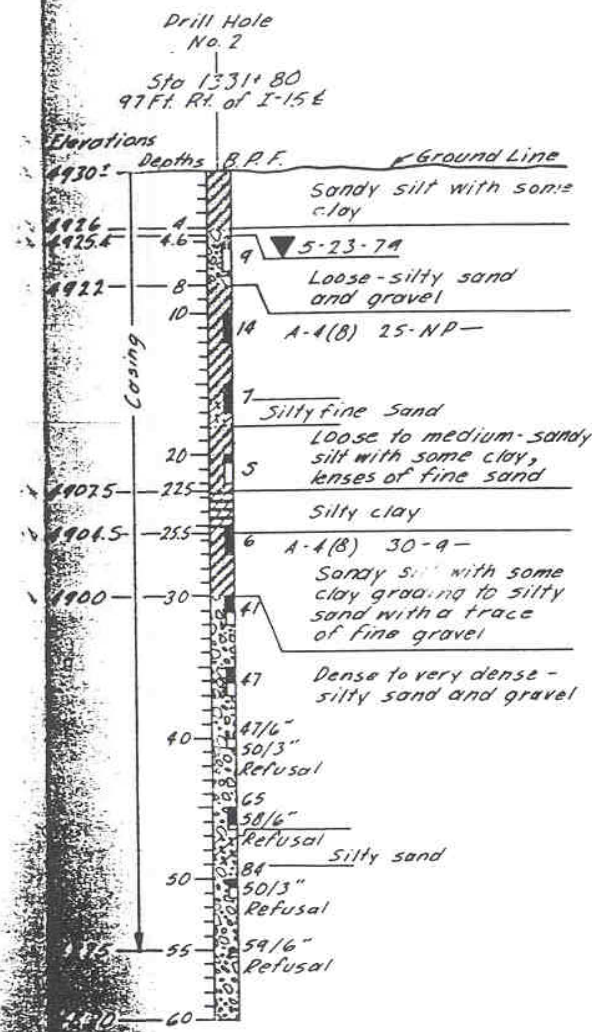 Drill Hole
No. 2
Sta 1331+80
97 Ft. Rt. of I-15 ℄
Elevations
Depths B.P.F.
Ground Line
4930±
Sandy silt with some
clay
4926 4
4925.4 4.6
▼ 5-23-79
9
4922 8
Loose-silty sand
and gravel
10
14 A-4(8) 25-NP—
Casing
7
Silty fine Sand
Loose to medium-sandy
silt with some clay,
lenses of fine sand
20
5
4907.5 22.5
Silty clay
4904.5 25.5
6 A-4(8) 30-9—
Sandy silt with some
clay grading to silty
sand with a trace
of fine gravel
4900 30
41
Dense to very dense-
silty sand and gravel
47
40 47/6"
50/3"
Refusal
65
58/6"
Refusal
Silty sand
84
50 50/3"
Refusal
55 59/6"
Refusal
60